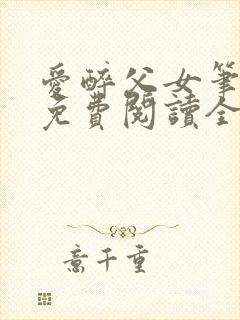 愛醉父女筆
免費閱讀全
意千重